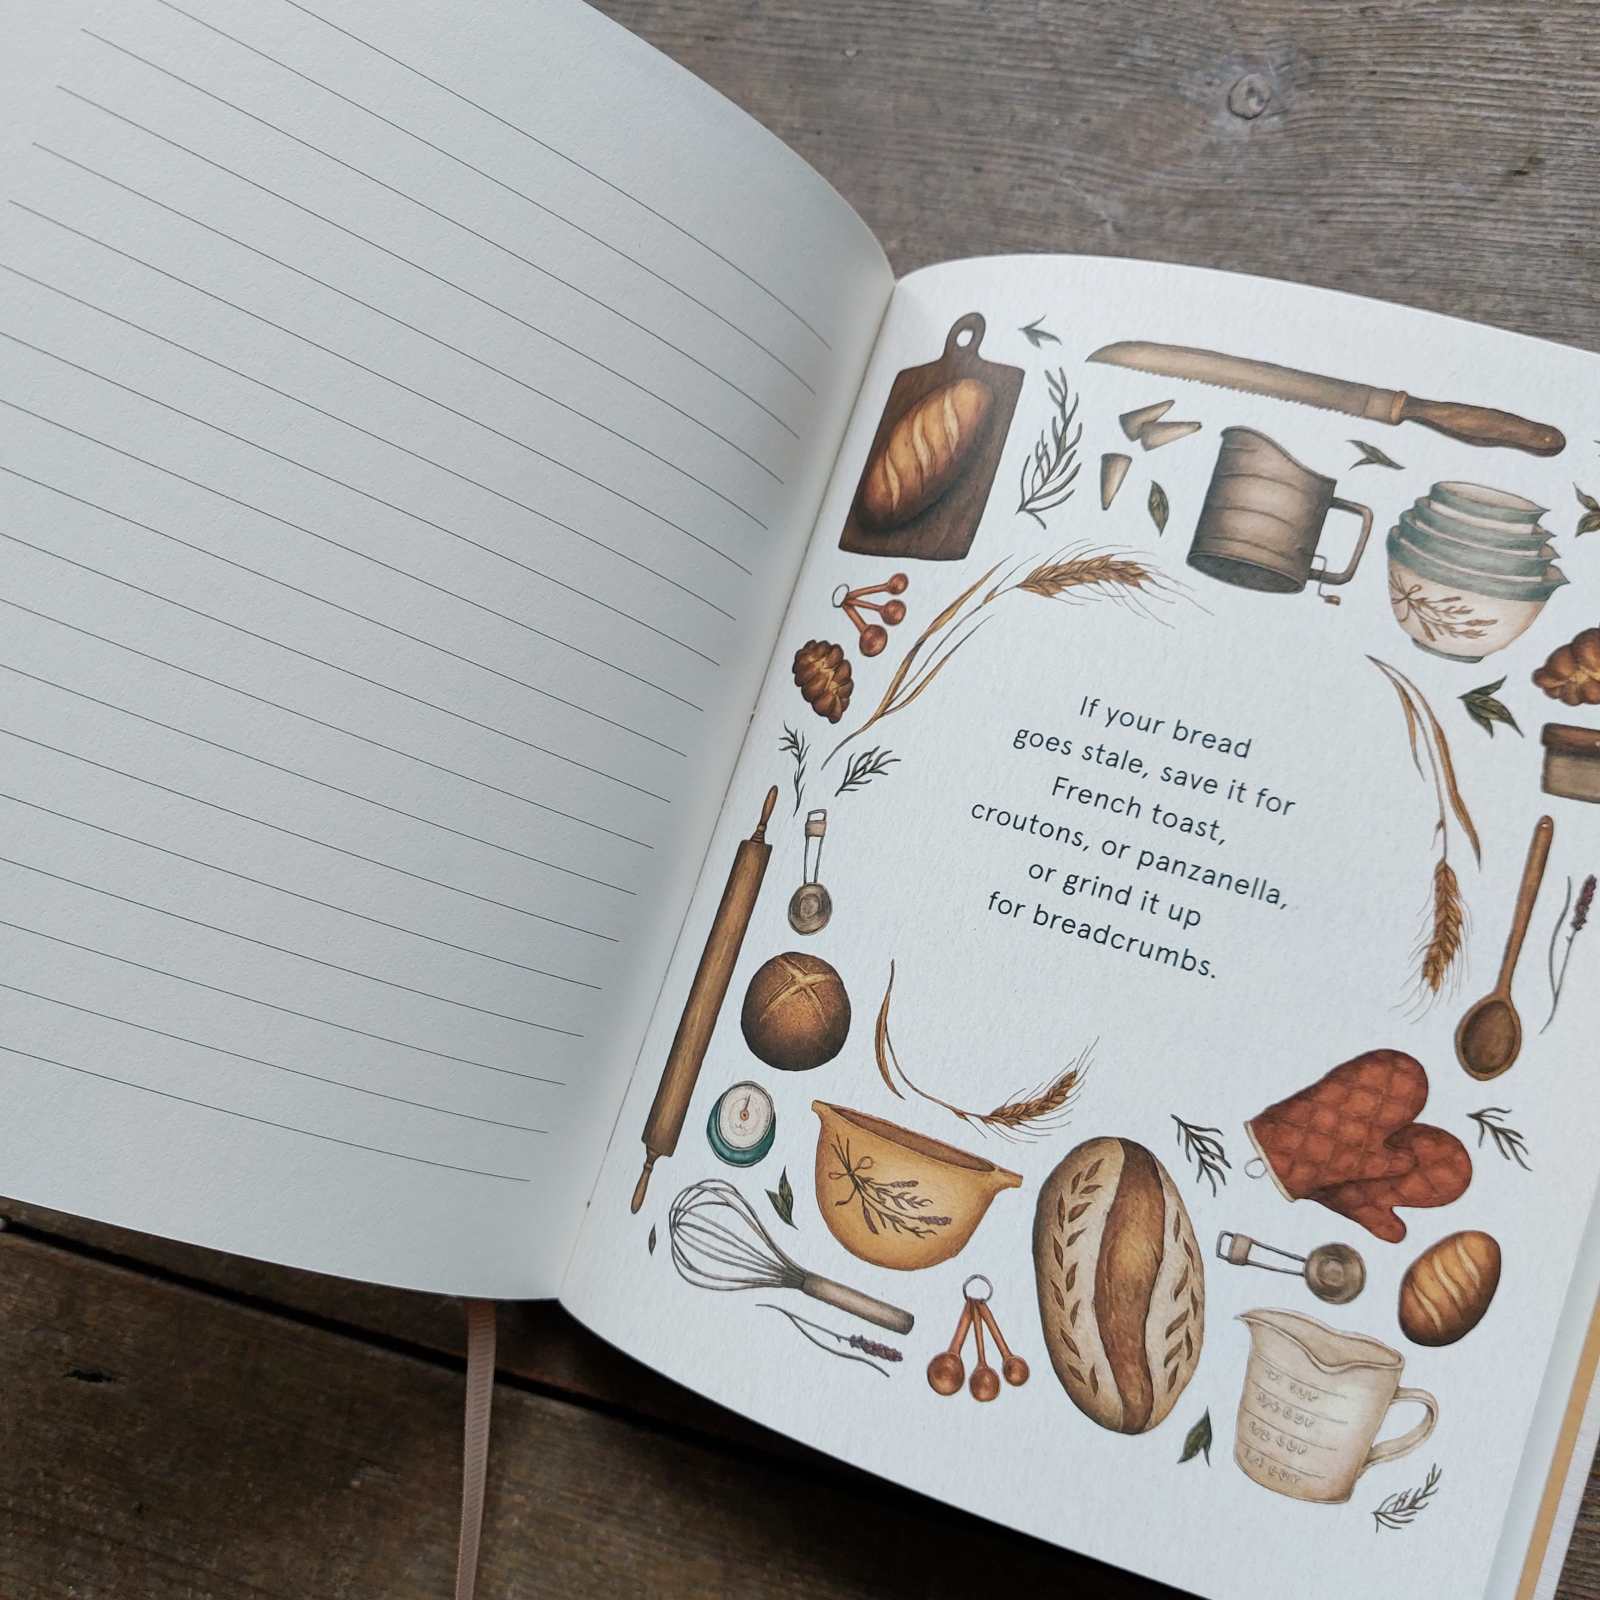 If your bread
goes stale, save it for
French toast,
croutons, or panzanella,
or grind it up
for breadcrumbs.